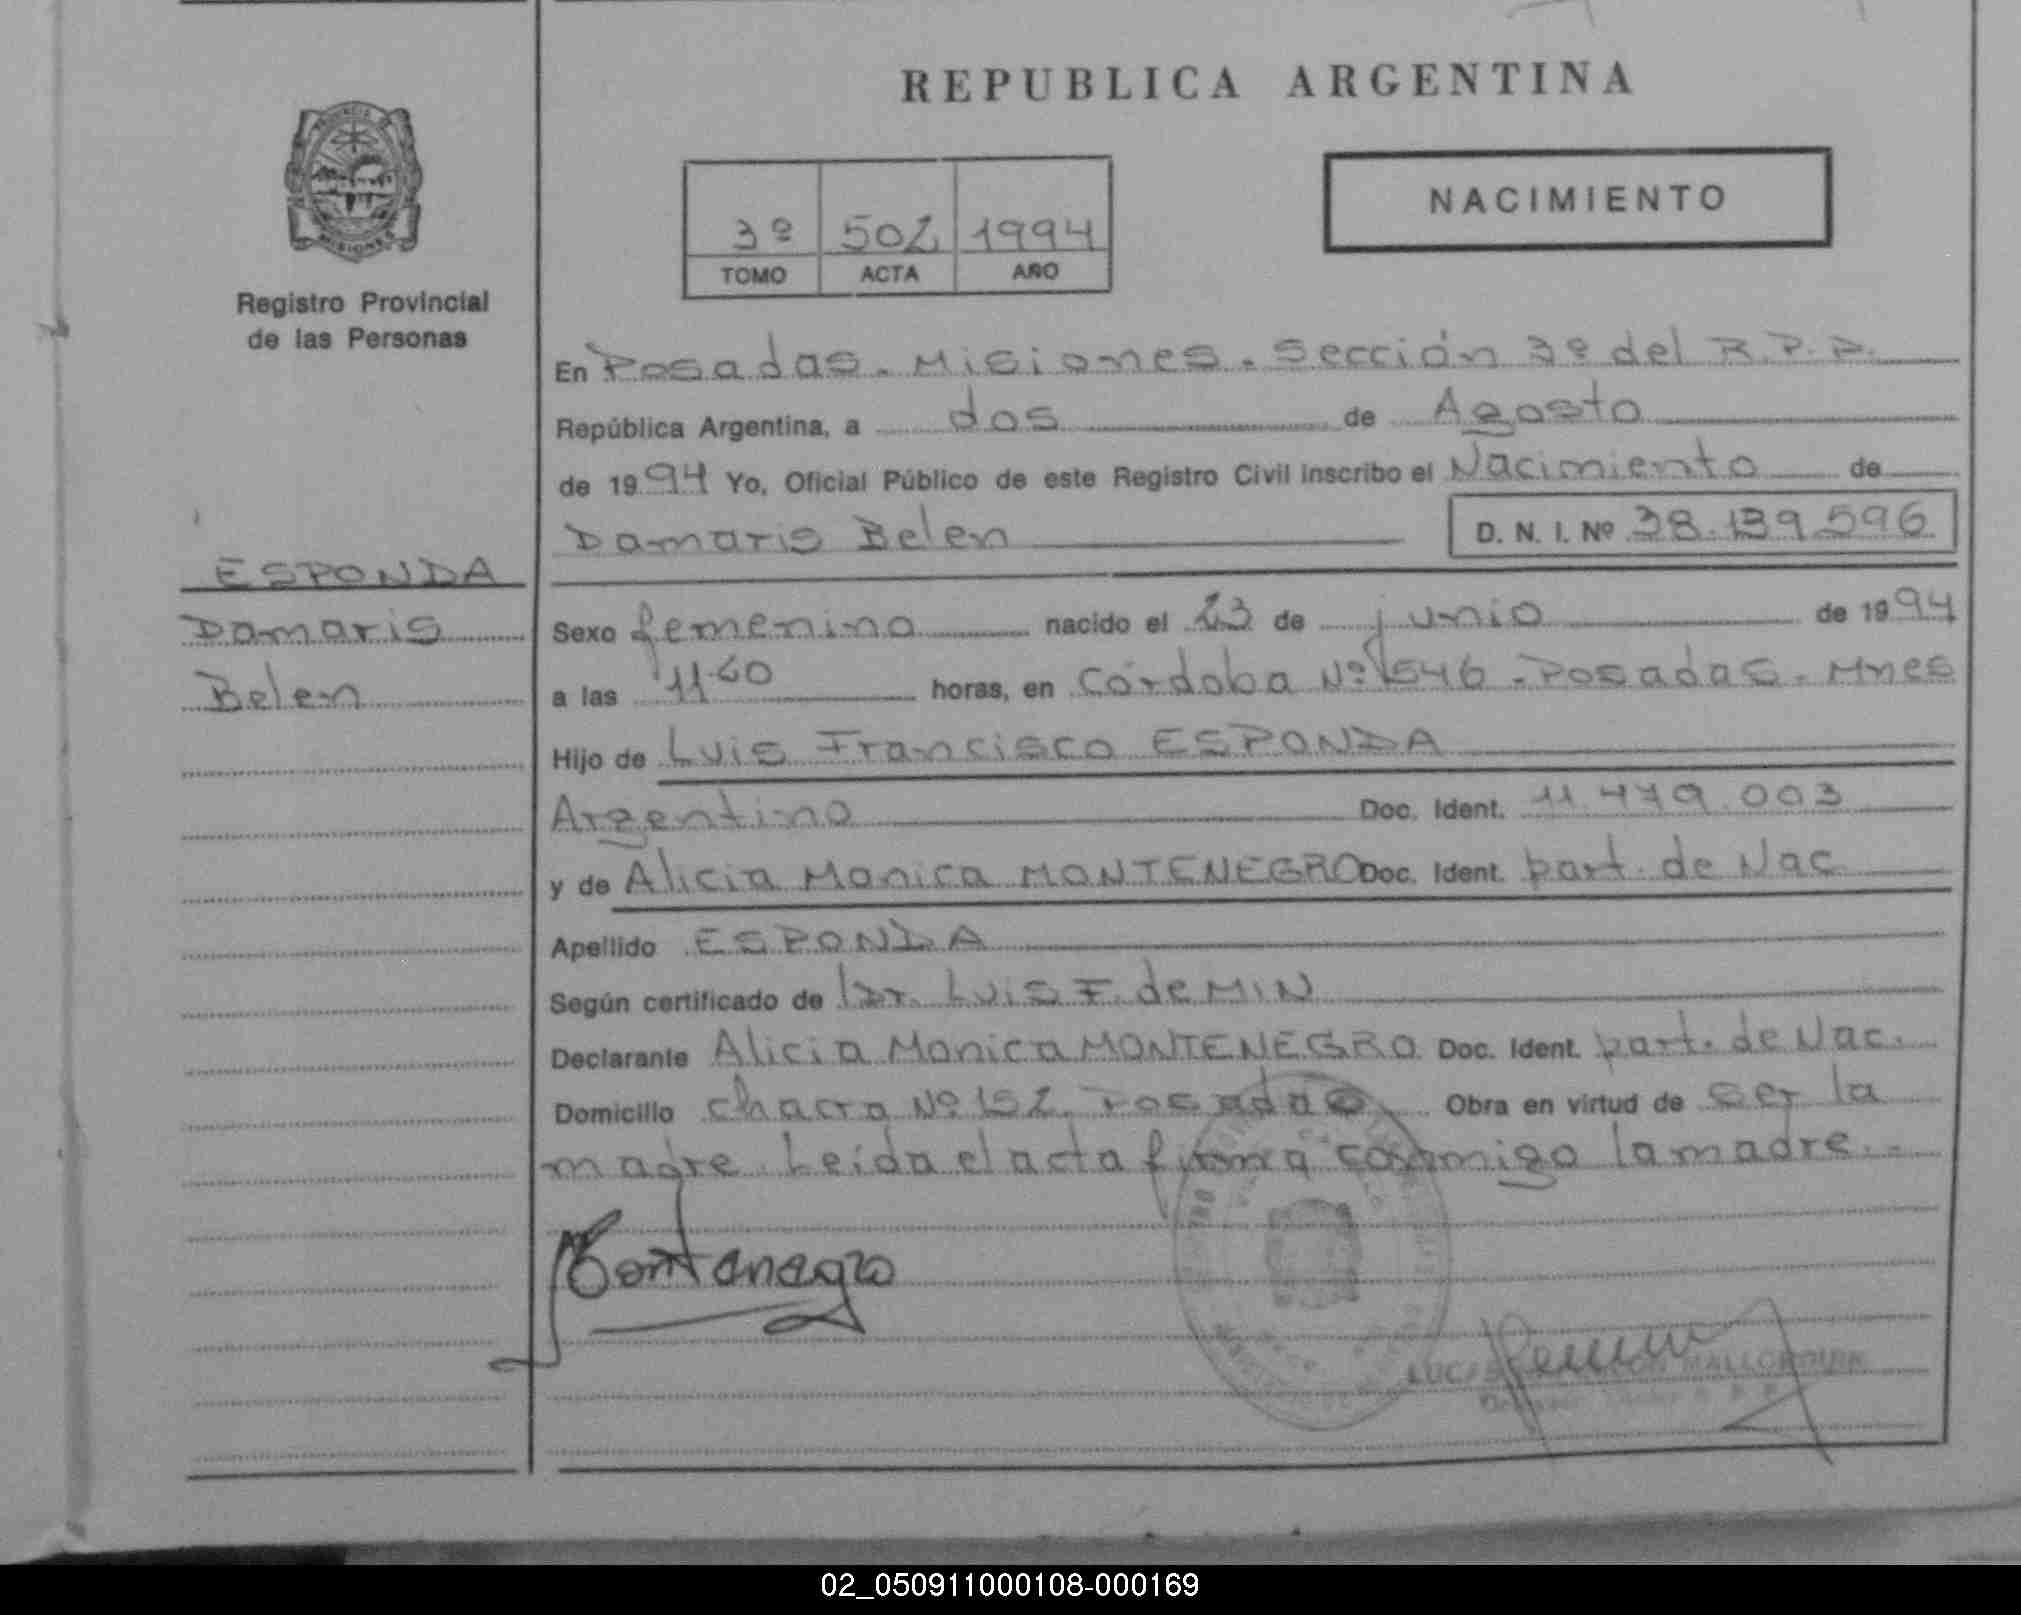 REPUBLICA ARGENTINA
NACIMIENTO
3º 502 1994
TOMO ACTA AÑO
Registro Provincial
de las Personas
En Posadas. Misiones. Sección 3º del R.P.P.
República Argentina, a dos de Agosto
de 1994 Yo, Oficial Público de este Registro Civil inscribo el Nacimiento de
Damaris Belen D. N. I. Nº 38.139.596
ESPONDA
Damaris
Belen
Sexo femenino nacido el 23 de junio de 1994
a las horas, en Córdoba Nº 1546 - Posadas. Mnes
Hijo de Luis Francisco ESPONDA
Argentino Doc. Ident. 11.479.003
y de Alicia Monica MONTENEGRO Doc. Ident. part. de Nac
Apellido ESPONDA
Según certificado de Dr. Luis F. de MIN
Declarante Alicia Monica MONTENEGRO Doc. Ident. part. de Nac.
Domicilio chacra Nº 152 Posadas Obra en virtud de ser la
madre. Leída el acta firma conmigo la madre..
Montenegro
02_050911000108-000169